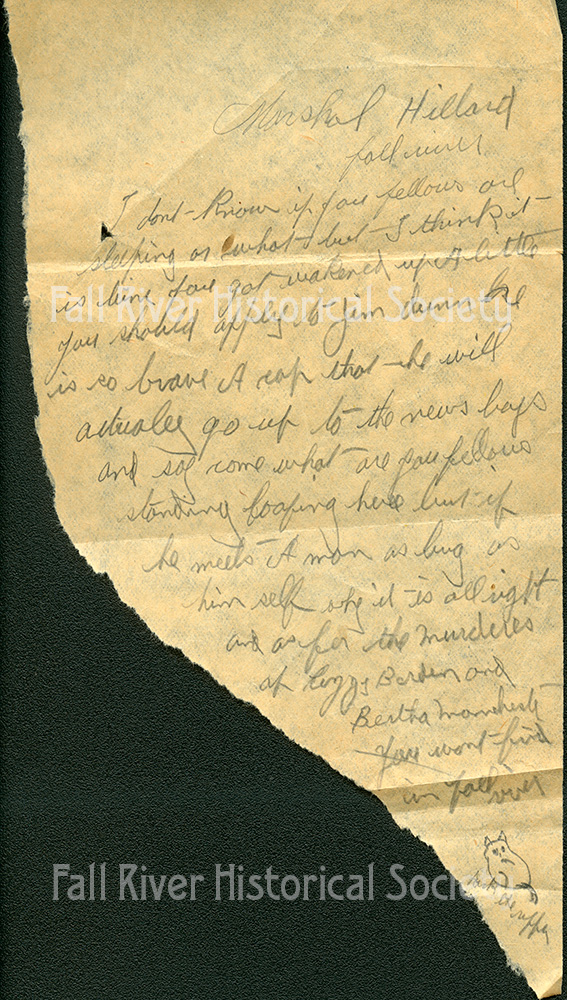 Marshal Hillard
fall river
I dont Know if you fellows are
sleeping or what but I think it
is time you got wakened up A little
you should apply to Jim he
is so brave A cop that he will
actualey go up to the news boys
and say come what are you fellows
standing loafing here but if
he meets A man as bug as
him self why it is all right
and as for the murderes
of Lizzy Borden and
Bertha
You wont find
in fall river
Fall River Historical Society
Fall River Historical Society
Fall River Historical Society